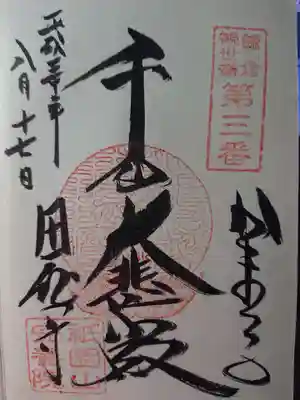 第三番
かまくら
千手大悲殿
田代寺
平成三十年
八月十七日
祇園山
安養院